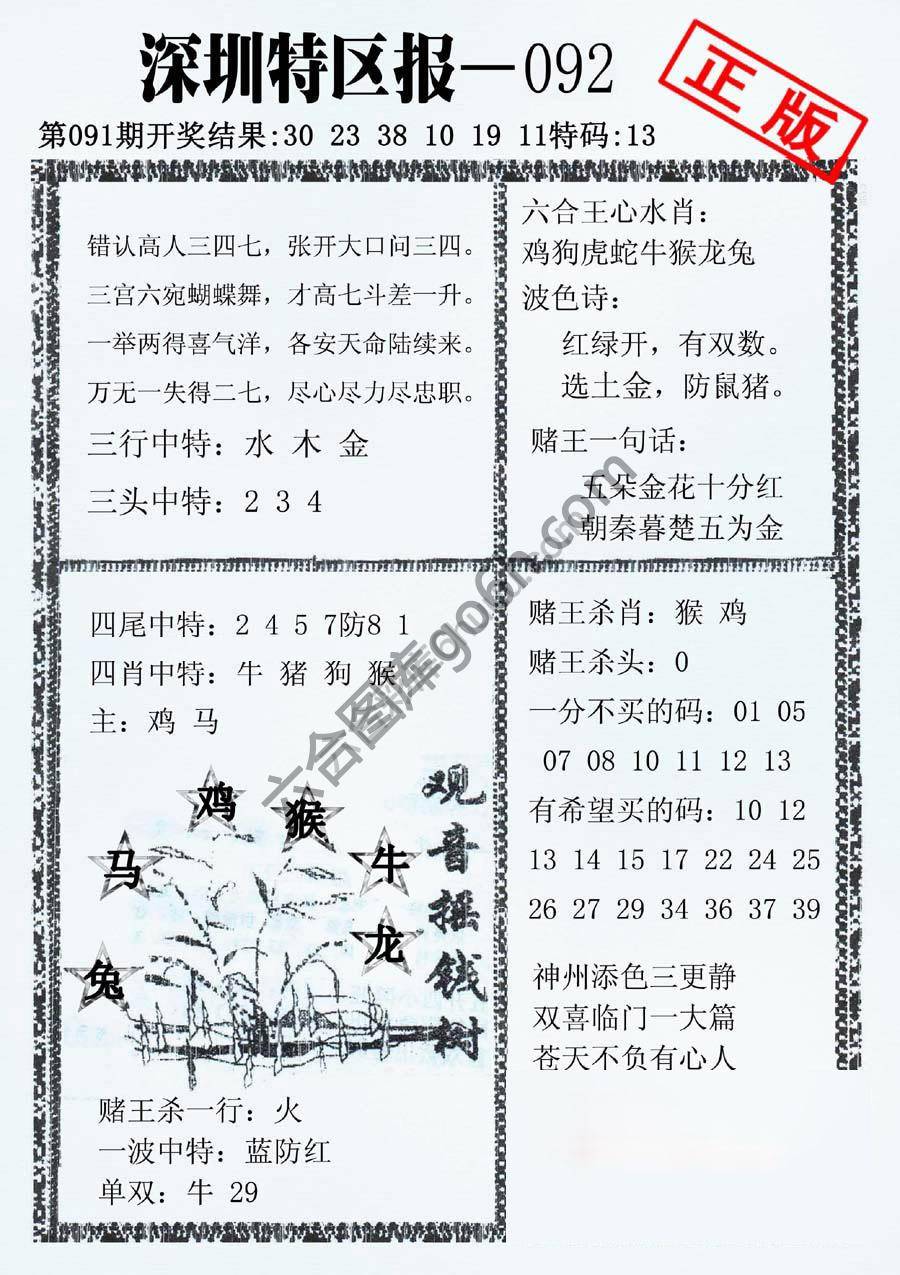 深圳特区报—092
正版
第091期开奖结果:30 23 38 10 19 11特码:13
错认高人三四七，张开大口问三四。
三宫六宛蝴蝶舞，才高七斗差一升。
一举两得喜气洋，各安天命陆续来。
万无一失得二七，尽心尽力尽忠职。
三行中特：水 木 金
三头中特：2 3 4
六合王心水肖：
鸡狗虎蛇牛猴龙兔
波色诗：
红绿开，有双数。
选土金，防鼠猪。
赌王一句话：
五朵金花十分红
朝秦暮楚五为金
四尾中特：2 4 5 7防8 1
四肖中特：牛 猪 狗 猴
主：鸡 马
鸡
猴
马
牛
龙
兔
观音摇钱树
赌王杀一行：火
一波中特：蓝防红
单双：牛 29
赌王杀肖：猴 鸡
赌王杀头：0
一分不买的码：01 05
07 08 10 11 12 13
有希望买的码：10 12
13 14 15 17 22 24 25
26 27 29 34 36 37 39
神州添色三更静
双喜临门一大篇
苍天不负有心人
六合图库go6h.com